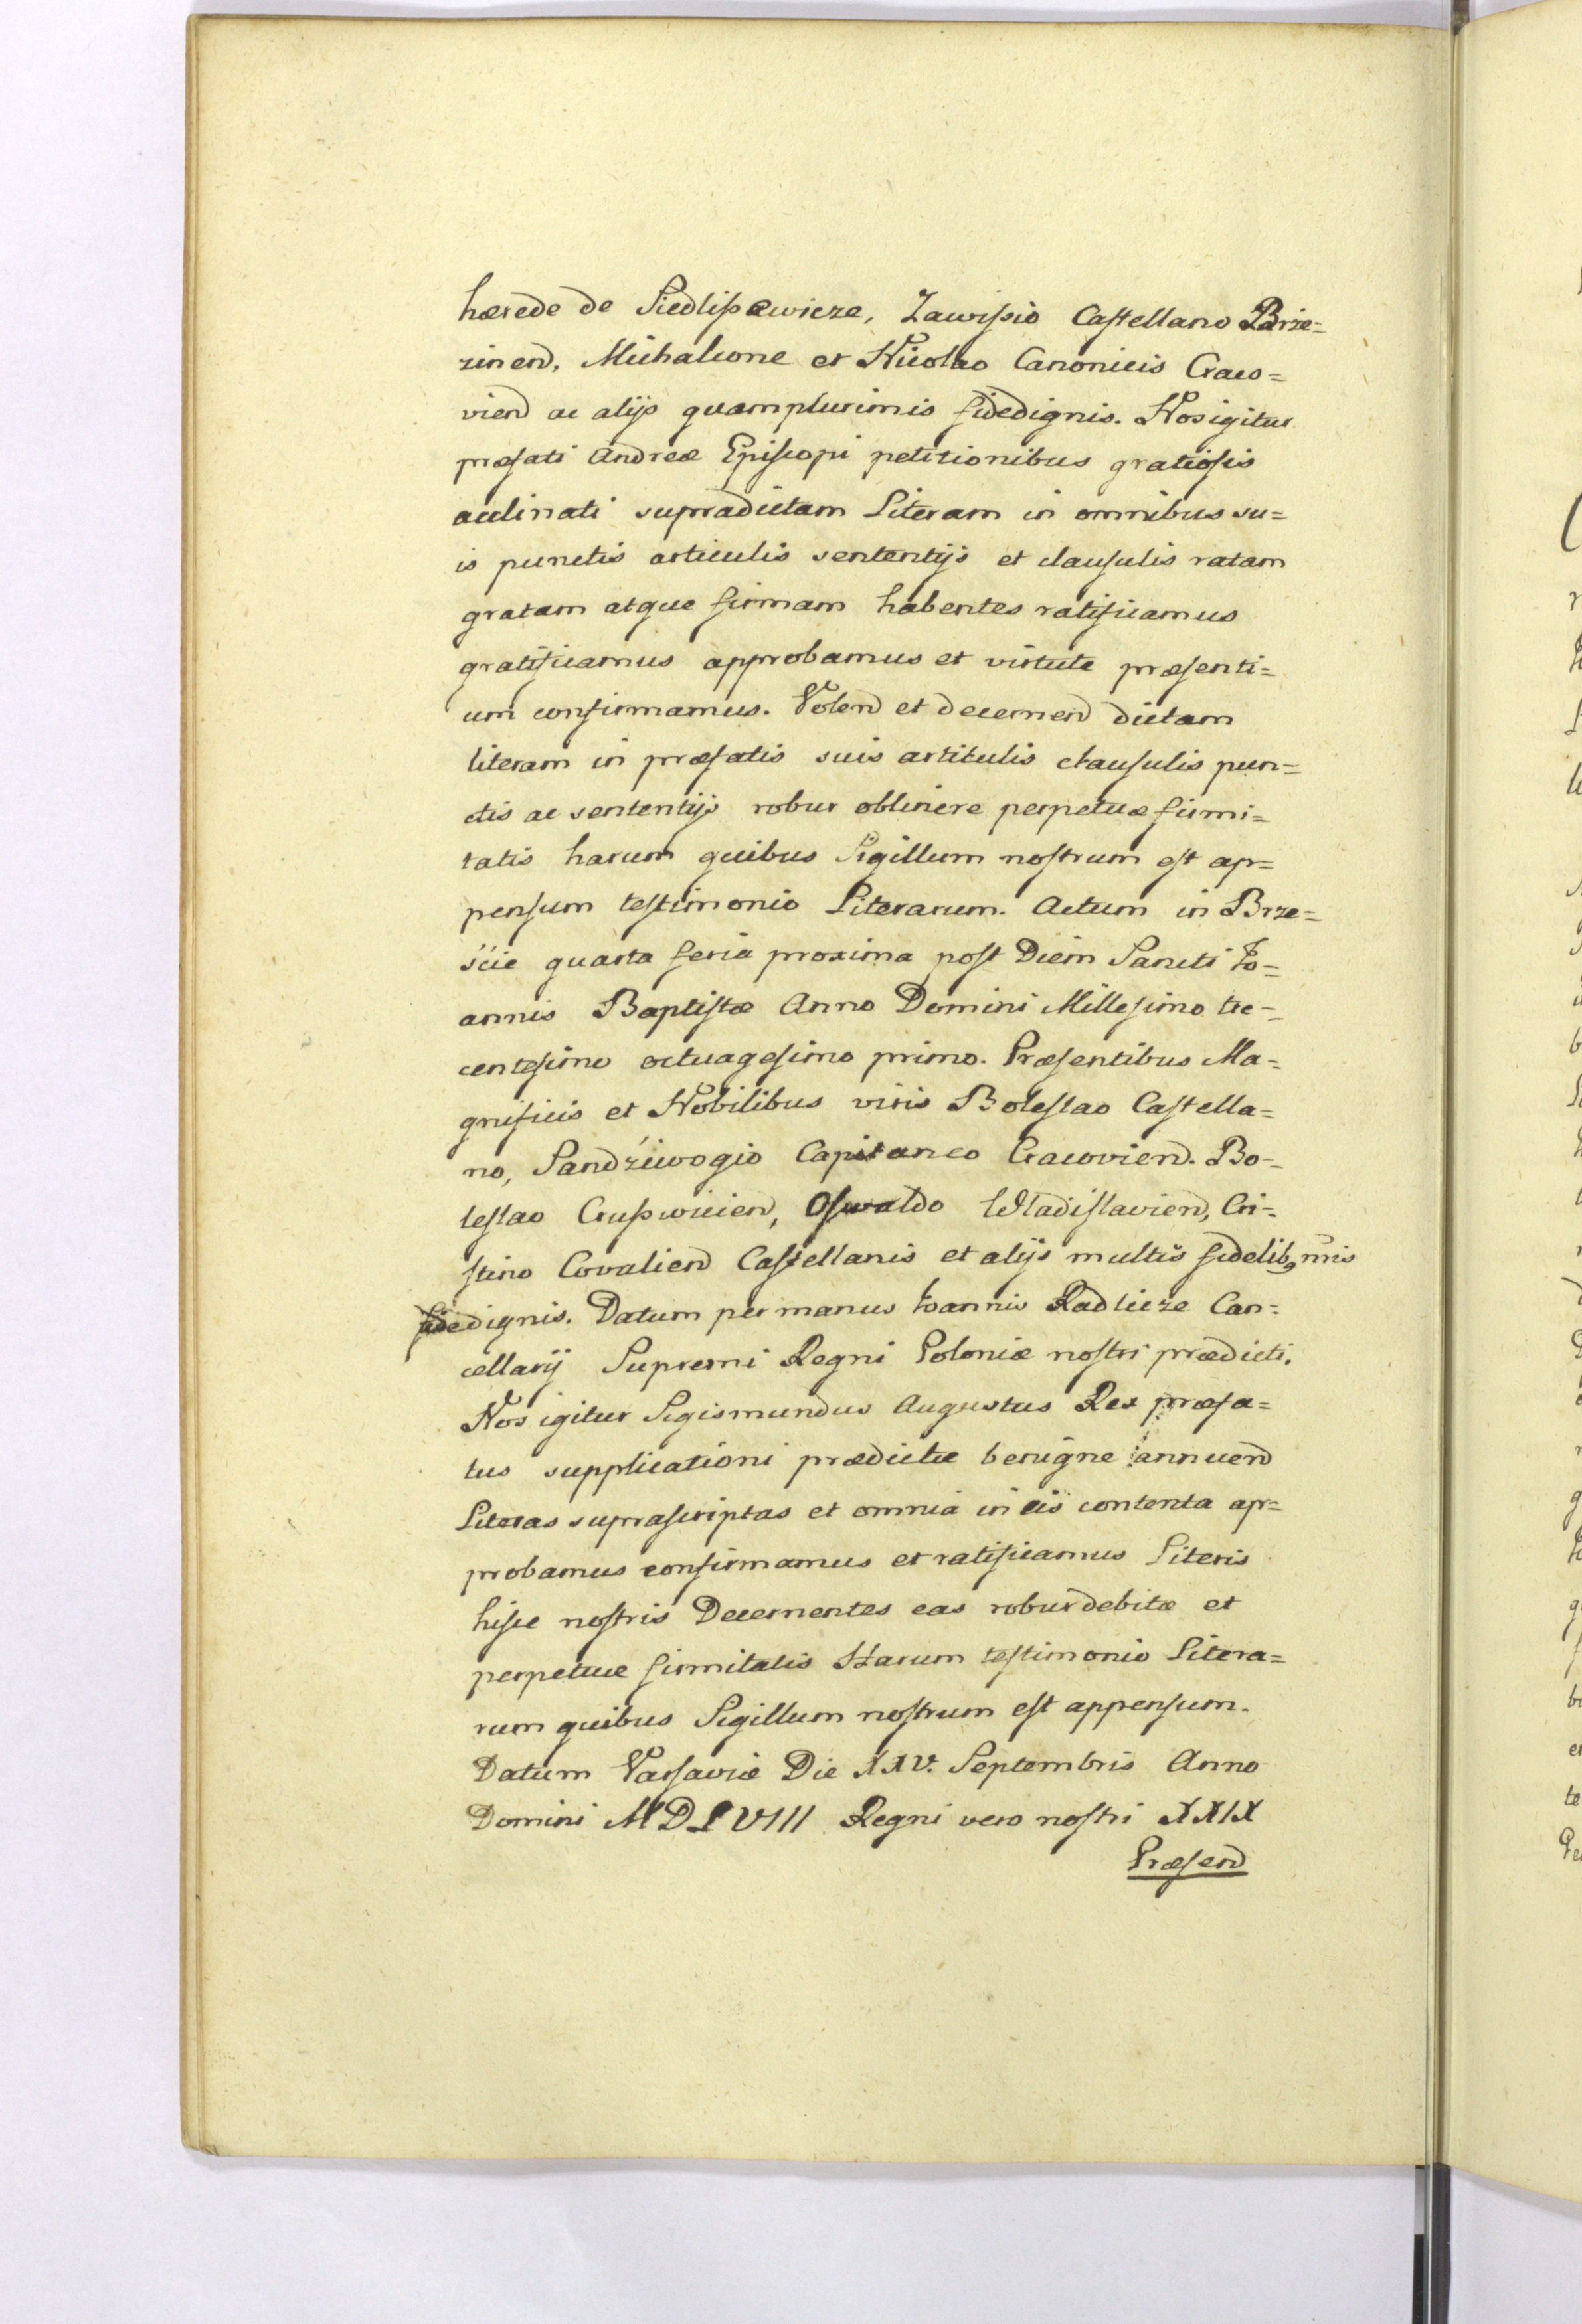 hærede de Siedlißewicze, Zawißio Castellano Brze=
zinen̄, Michalione et Nicolao Canonicis Craco=
vien̄ ac alijs quamplurimis fidedignis. Nos igitur
præfati Andreæ Episcopi petitionibus gratiosis
acclinati supradictam Literam in omnibus su=
is punctis articulis sententijs et clausulis ratam
gratam atque firmam habentes ratificamus
gratificamus approbamus et virtute præsenti=
um confirmamus. Volen̄ et decernen̄ dictam
literam in præfatis suis artitulis clausulis pun=
ctis ac sententijs robur obtinere perpetuæ firmi=
tatis harum quibus Sigillum nostrum est ap=
pensum testimonio Literarum. Actum in Brze=
ście quarta feria proxima post Diem Sancti Io=
annis Baptistæ Anno Domini Millesimo tre=
centesimo octuagesimo primo. Præsentibus Ma=
gnificis et Nobilibus viris Boleslao Castella=
no, Sandźiwogio Capitaneo Cracovien̄. Bo=
leslao Crußwicien̄, Oswaldo Wladislavien̄, Cri=
stino Covalien̄ Castellanis et alijs multis fidelibq nr̄is
fidedignis. Datum per manus Ioannis Radlicze Can=
cellarij Supremi Regni Poloniæ nostri prædicti.
Nos igitur Sigismundus Augustus Rex præfa=
tus supplicationi prædictæ benigne annuen̄
Literas suprascriptas et omnia in eis contenta ap=
probamus confirmamus et ratificamus Literis
hisce nostris Decernentes eas robur debitæ et
perpetuæ firmitatis Harum testimonio Litera=
rum quibus Sigillum nostrum est appensum.
Datum Varsaviæ Die XXV. Septembris Anno
Domini MDLVIII Regni vero nostri XXIX
Præsen̄